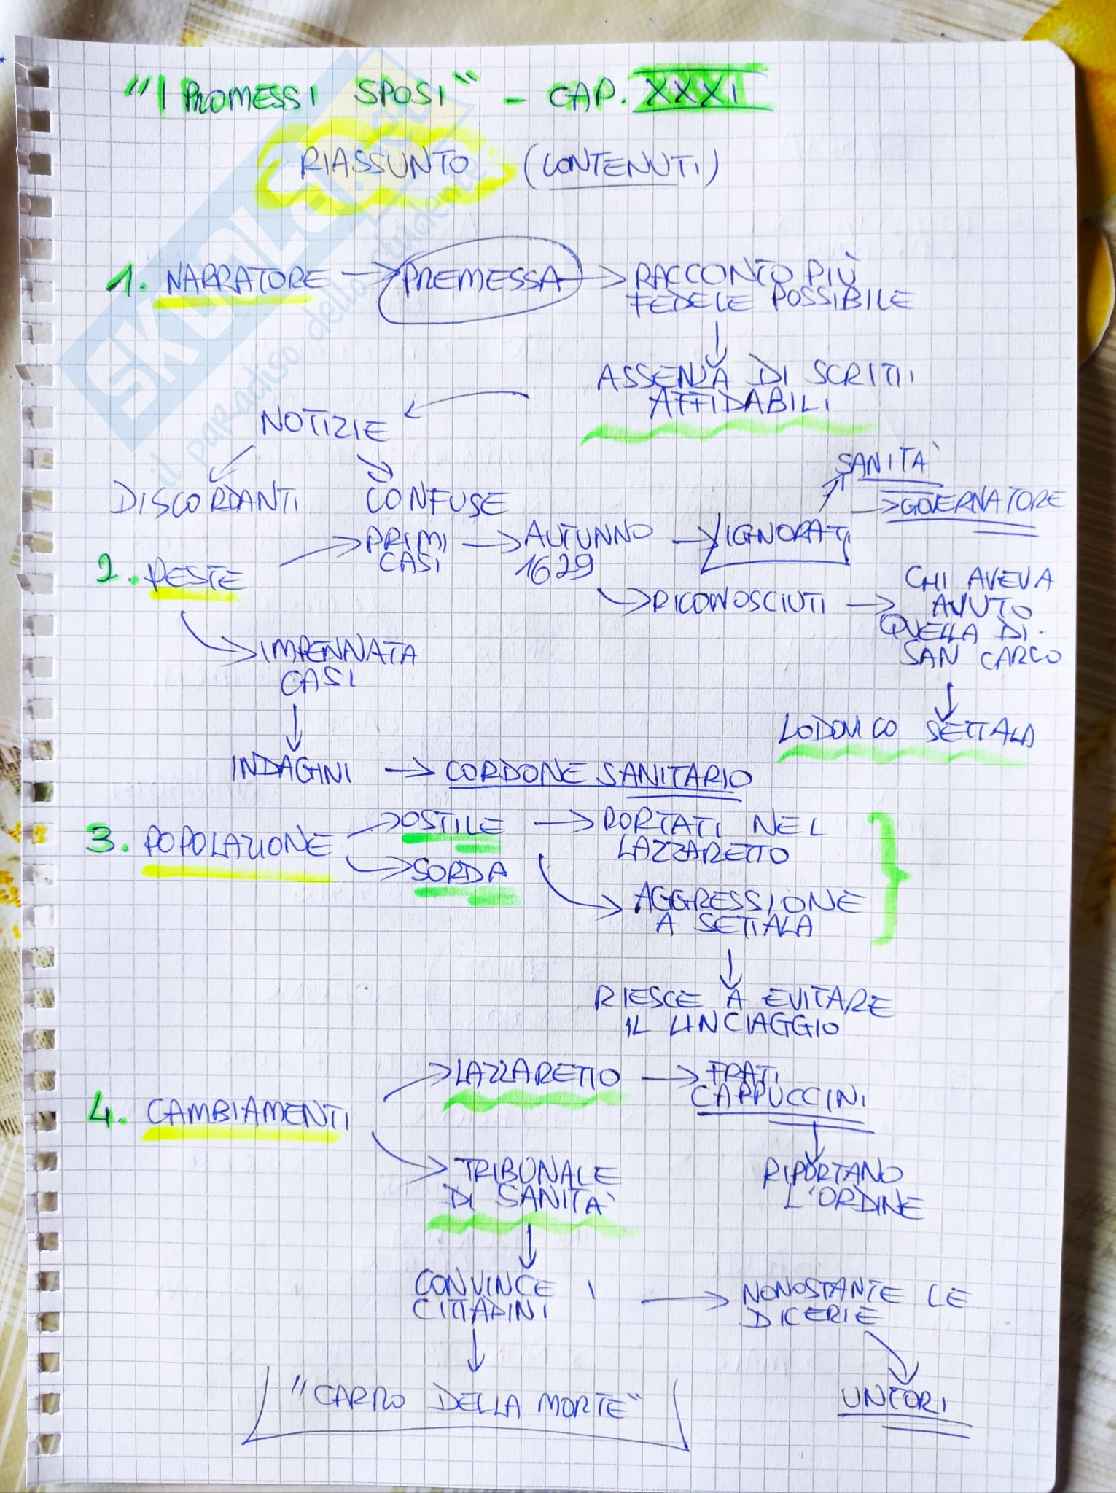 "I PROMESSI SPOSI" - CAP. XXXI
RIASSUNTO (CONTENUTI)
1. NARRATORE → PREMESSA → RACCONTO PIÙ
FEDELE POSSIBILE
ASSENZA DI SCRITTI
AFFIDABILI
NOTIZIE
DISCORDANTI CONFUSE
SANITÀ
GOVERNATORE
2. PESTE → PRIMI
CASI → AUTUNNO
1629 → IGNORATI
RICONOSCIUTI → CHI AVEVA
AVUTO
QUELLA DI
SAN CARLO
LODOVICO SETTALA
IMPENNATA
CASI
INDAGINI → CORDONE SANITARIO
3. POPOLAZIONE
OSTILE → PORTATI NEL
LAZZARETTO
SORDA
AGGRESSIONE
A SETTALA
RIESCE A EVITARE
IL LINCIAGGIO
4. CAMBIAMENTI
LAZZARETTO → FRATI
CAPPUCCINI
RIPORTANO
L'ORDINE
TRIBUNALE
DI SANITÀ
CONVINCE I
CITTADINI → NONOSTANTE LE
DICERIE
UNTORI
"CARRO DELLA MORTE"
SKUOLA.net
il paradiso dello studente